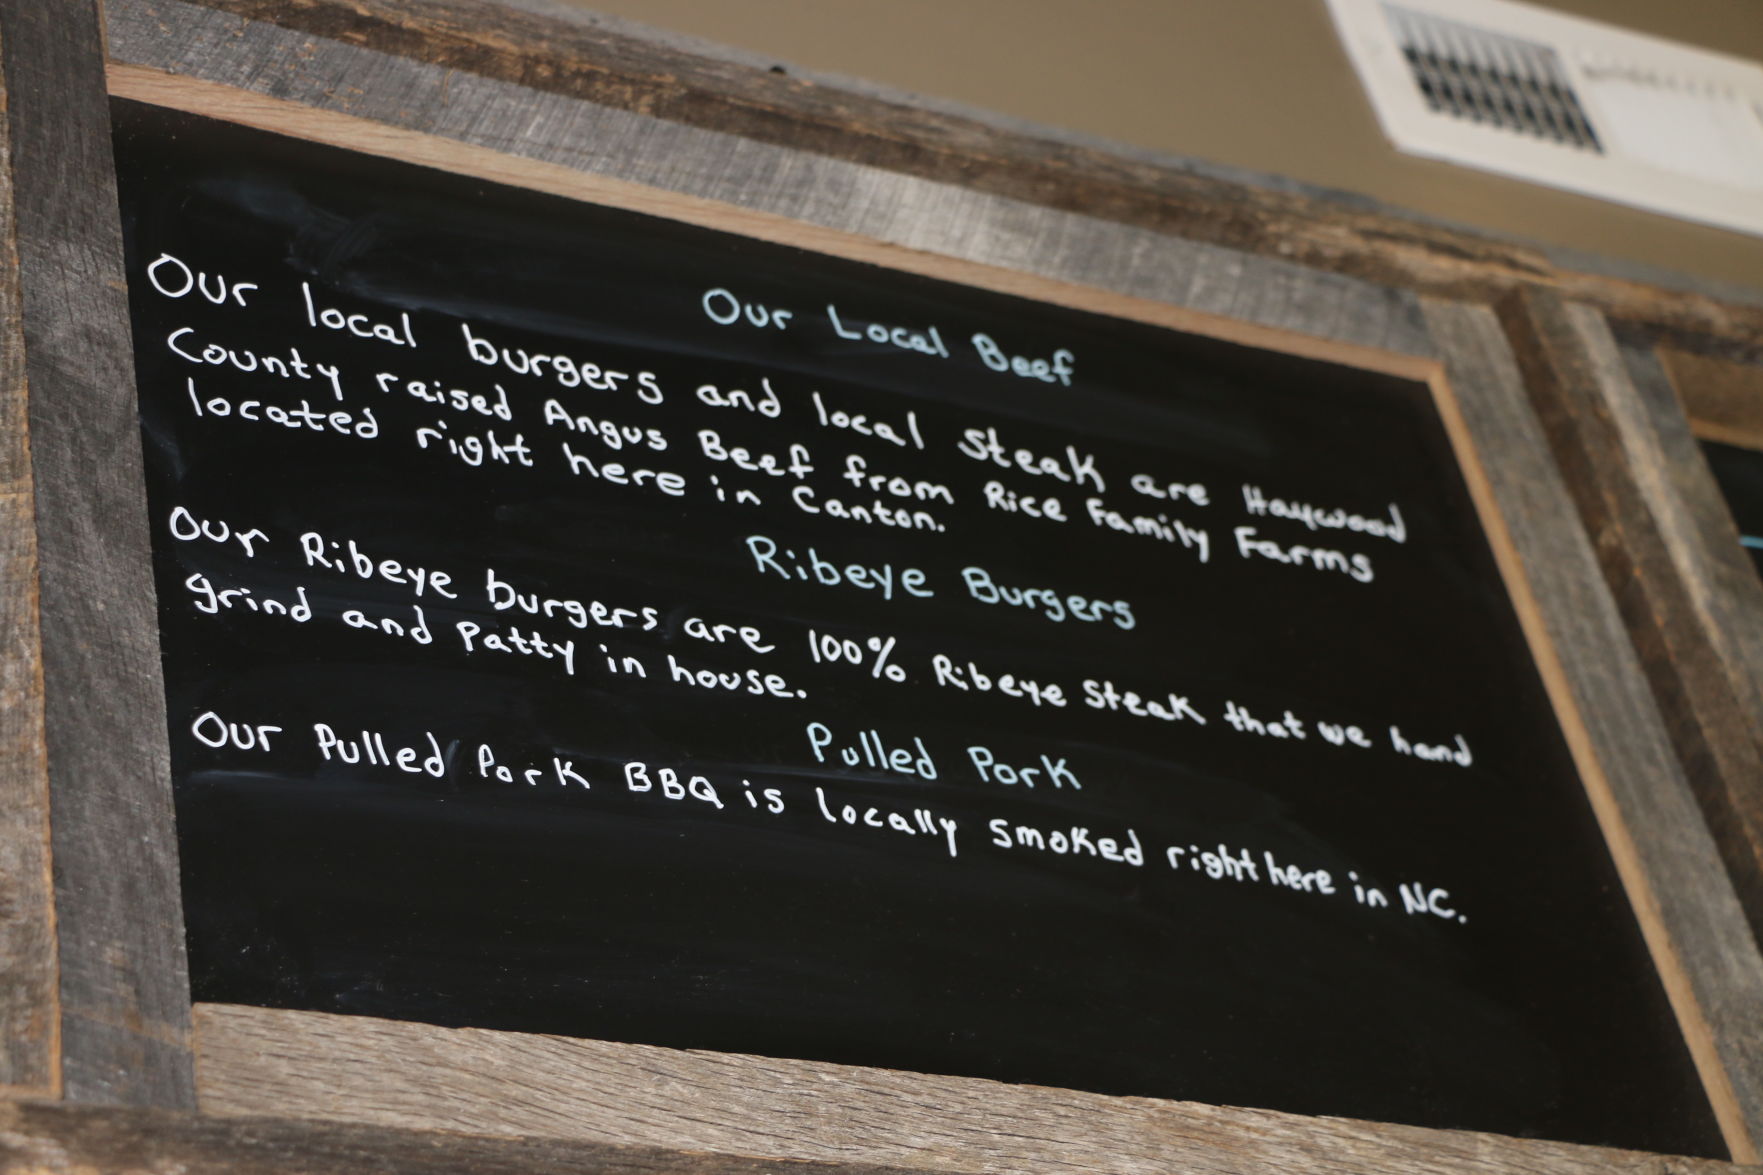 Our Local Beef
Our local burgers and local steak are Haywood
County raised Angus Beef from Rice Family Farms
located right here in Canton.
Ribeye Burgers
Our Ribeye burgers are 100% Ribeye Steak that we hand
grind and patty in house.
Pulled Pork
Our Pulled Pork BBQ is locally smoked right here in NC.